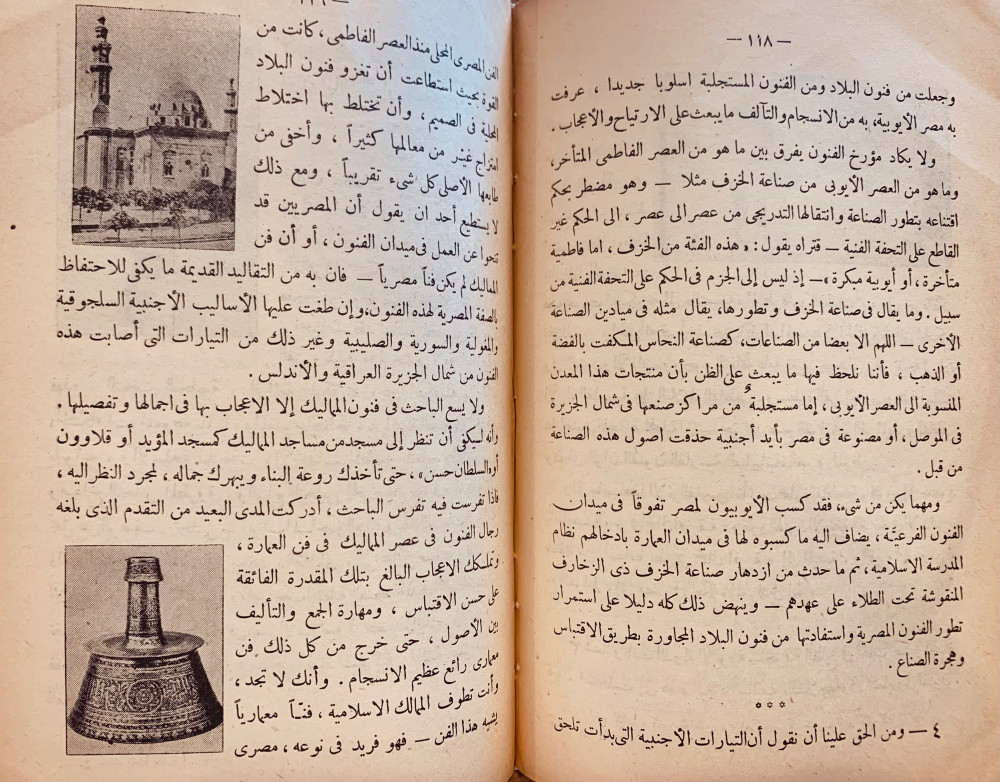 — ١١٨ —
وجعلت من فنون البلاد ومن الفنون المستجلبة اسلوبا جديدا ، عرفت
به مصر الأيوبية، به من الانسجام والتآلف ما يبعث على الارتياح والأعجاب .
ولا يكاد مؤرخ الفنون يفرق بين ما هو من العصر الفاطمى المتأخر،
وما هو من العصر الأيوبى من صناعة الخزف مثلا — وهو مضطر بحكم
اقتناعه بتطور الصناعة وانتقالها التدريجى من عصر الى عصر ، الى الحكم غير
القاطع على التحفة الفنية — فتراه يقول : « هذه الفئة من الخزف ، اما فاطمية
متأخرة ، أو أيوبية مبكرة ، — إذ ليس إلى الجزم فى الحكم على التحفة الفنية من
سبيل . وما يقال فى صناعة الخزف وتطورها، يقال مثله فى ميادين الصناعة
الأخرى — اللهم الا بعضا من الصناعات، كصناعة النحاس المسكفت بالفضة
أو الذهب ، فأننا نلحظ فيها ما يبعث على الظن بأن منتجات هذا المعدن
المنسوبة الى العصر الأيوبى ، إما مستجلبة من مراكز صنعها فى شمال الجزيرة
فى الموصل ، أو مصنوعة فى مصر بأيد أجنبية حذقت اصول هذه الصناعة
من قبل .
ومهما يكن من شىء، فقد كسب الأيوبيون لمصر تفوقا فى ميدان
الفنون الفرعيّة ، يضاف اليه ما كسبوه لها فى ميدان العمارة بادخالهم نظام
المدرسة الاسلامية ، ثم ما حدث من ازدهار صناعة الخزف ذى الزخارف
المنقوشة تحت الطلاء على عهدهم — وينهض ذلك كله دليلا على استمرار
تطور الفنون المصرية واستفادتها من فنون البلاد المجاورة بطريق الاقتباس
وهجرة الصناع .
* * *
٤ — ومن الحق علينا أن نقول أن التيارات الأجنبية التى بدأت تلحق
الفن المصرى المحلى منذ العصر الفاطمى ، كانت من
القوة بحيث استطاعت أن تغزو فنون البلاد
المحلية فى الصميم ، وأن تختلط بها اختلاط
امتزاج غيّر من معالمها كثيراً ، وأخفى من
طابعها الأصلى كل شىء تقريباً ، ومع ذلك
لا يستطيع أحد ان يقول أن المصريين قد
تنحوا عن العمل فى ميدان الفنون ، أو أن فن
المماليك لم يكن فناً مصرياً — فان به من التقاليد القديمة ما يكفى للاحتفاظ
بالصفة المصرية لهذه الفنون، وإن طغت عليها الأساليب الأجنبية السلجوقية
والمغولية والسورية والصليبية وغير ذلك من التيارات التى أصابت هذه
الفنون من شمال الجزيرة العراقية والأندلس .
ولا يسع الباحث فى فنون المماليك إلا الاعجاب بها فى اجمالها وتفصيلها .
وأنه ليكفى أن تنظر إلى مسجد من مساجد المماليك كمسجد المؤيد أو قلاوون
أو « السلطان حسن » ، حتى تأخذك روعة البناء ويبهرك جماله ، لمجرد النظر اليه ،
فاذا تفرست فيه تفرس الباحث ، أدركت المدى البعيد من التقدم الذى بلغه
رجال الفنون فى عصر المماليك فى فن العمارة ،
وتملكك الاعجاب البالغ بتلك المقدرة الفائقة
على حسن الاقتباس ، ومهارة الجمع والتأليف
بين الأصول ، حتى خرج من كل ذلك فن
معمارى رائع عظيم الانسجام . وأنك لا تجد ،
وأنت تطوف الممالك الاسلامية ، فنّاً معمارياً
يشبه هذا الفن — فهو فريد فى نوعه ، مصرى